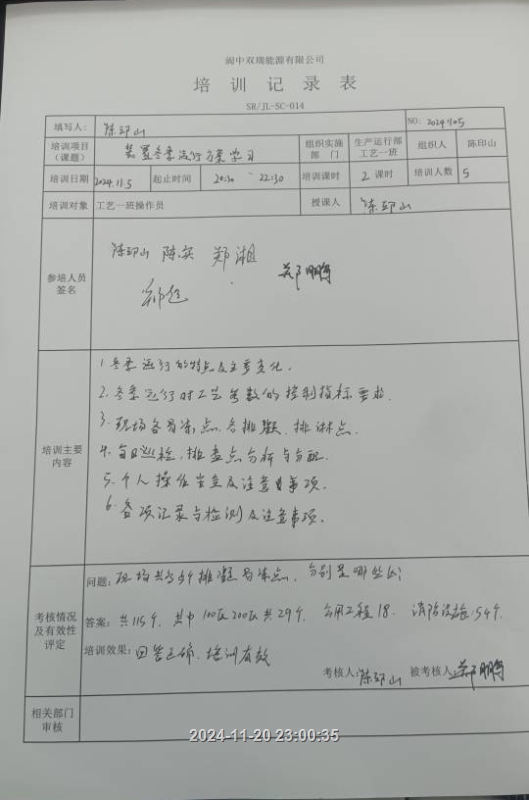 阆中双瑞能源有限公司
培训记录表
SR/JL-SC-014
填写人： 陈印山 NO: 20241105
培训项目（课题） 装置冬季运行方案学习 组织实施部门 生产运行部工艺一班 组织人 陈印山
培训日期 2024.11.5 起止时间 20:30 ~ 22:30 培训课时 2 课时 培训人数 5
培训对象 工艺一班操作员 授课人 陈印山
参培人员签名
陈印山 陈实 郑湘 郑鹏
培训主要内容
1. 冬季运行的特点及主要变化.
2. 冬季运行时工艺参数的控制指标要求.
3. 现场各易冻点、各排凝、排淋点.
4. 每日巡检，排查点分析与分配.
5. 个人操作安全及注意事项.
6. 各项记录与检测及注意事项.
考核情况及有效性评定
问题： 现场共多少个排凝易冻点，分别是哪些区？
答案： 共115个，其中100区200区共29个 公用工程18. 消防设施:54个.
培训效果： 回答正确，培训有效
考核人： 陈印山 被考核人： 郑鹏
相关部门审核
2024-11-20 23:00:35